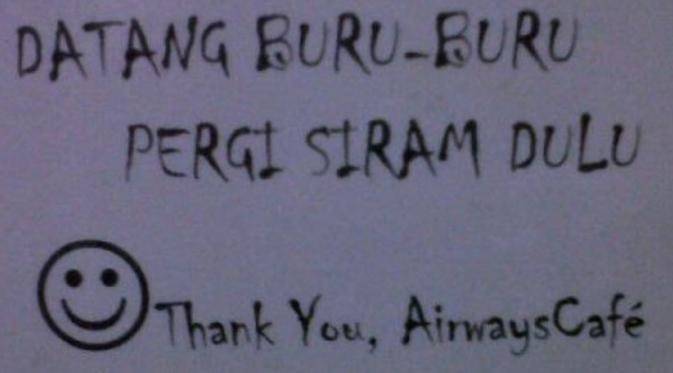 DATANG BURU-BURU
PERGI SIRAM DULU
Thank You, AirwaysCafé